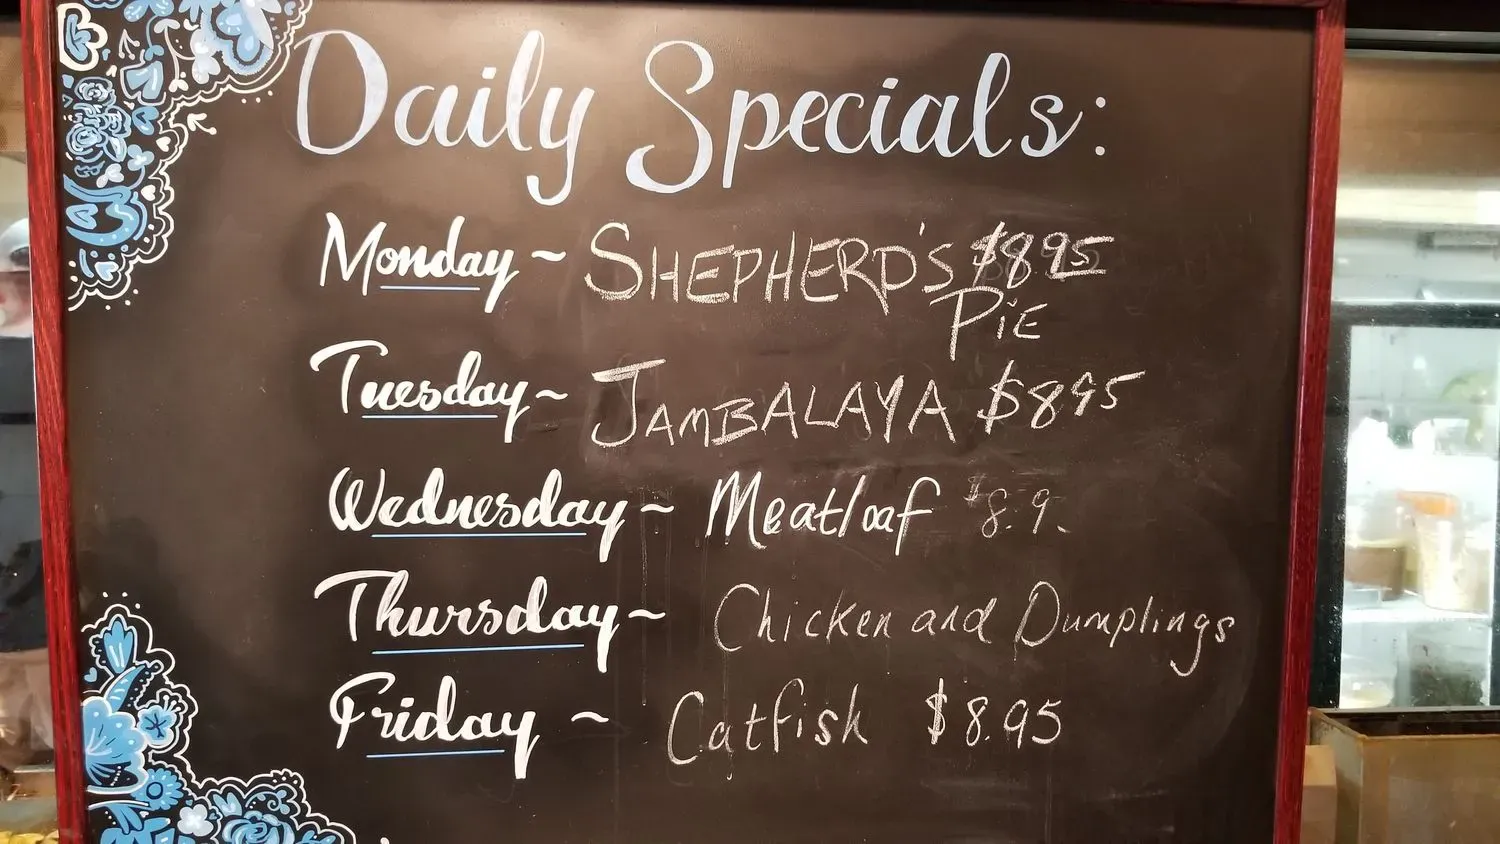 Daily Specials:
Monday ~ SHEPHERD'S $8.95
PIE
Tuesday ~ JAMBALAYA $8.95
Wednesday ~ Meatloaf $8.9
Thursday ~ Chicken and Dumplings
Friday ~ Catfish $8.95